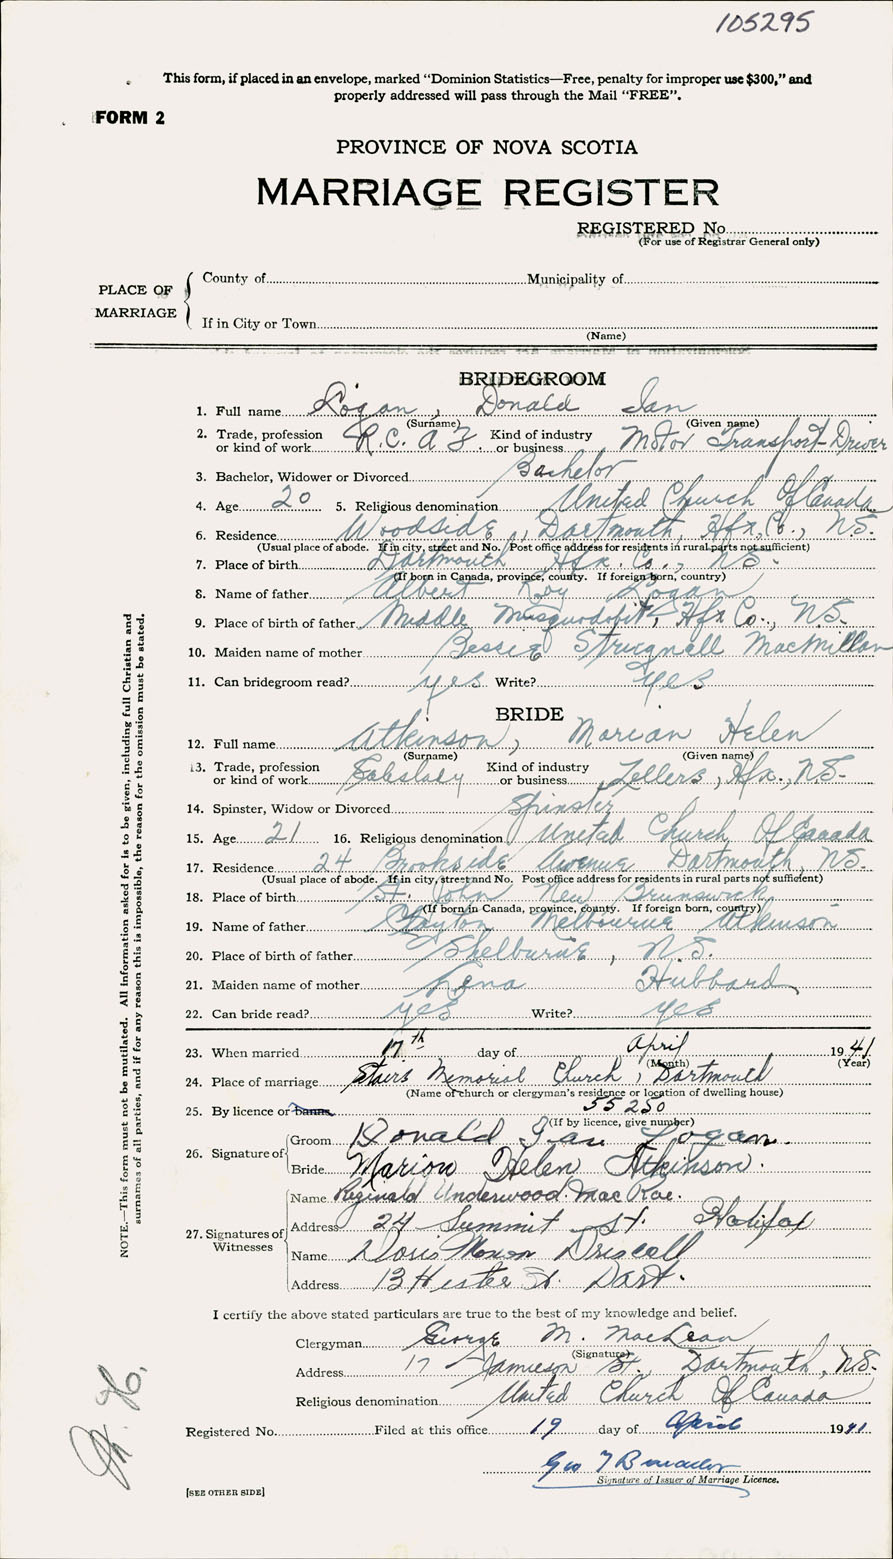 105295
This form, if placed in an envelope, marked “Dominion Statistics—Free, penalty for improper use $300,” and
properly addressed will pass through the Mail “FREE”.
FORM 2
PROVINCE OF NOVA SCOTIA
MARRIAGE REGISTER
REGISTERED No.
(For use of Registrar General only)
PLACE OF MARRIAGE
County of Municipality of
If in City or Town
(Name)
BRIDEGROOM
1. Full name Logan, Donald Ian
(Surname) (Given name)
2. Trade, profession or kind of work R.C.A.F. Kind of industry or business Motor Transport Driver
3. Bachelor, Widower or Divorced Bachelor
4. Age 20 5. Religious denomination United Church Of Canada
6. Residence Woodside, Dartmouth, Hfx. Co., N.S.
(Usual place of abode. If in city, street and No. Post office address for residents in rural parts not sufficient)
7. Place of birth Dartmouth Hfx. Co., N.S.
(If born in Canada, province, county. If foreign born, country)
8. Name of father Albert Roy Logan
9. Place of birth of father Middle Musquodobit, Hfx Co., N.S.
10. Maiden name of mother Bessie Strugnell MacMillan
11. Can bridegroom read? yes Write? yes
BRIDE
12. Full name Atkinson, Marian Helen
(Surname) (Given name)
13. Trade, profession or kind of work Saleslady Kind of industry or business Zellers, Hfx., N.S.
14. Spinster, Widow or Divorced Spinster
15. Age 21 16. Religious denomination United Church Of Canada
17. Residence 24 Brookside Avenue Dartmouth, N.S.
(Usual place of abode. If in city, street and No. Post office address for residents in rural parts not sufficient)
18. Place of birth St. John New Brunswick
(If born in Canada, province, county. If foreign born, country)
19. Name of father Clayton Melbourne Atkinson
20. Place of birth of father Shelburne, N.S.
21. Maiden name of mother Lena Hubbard
22. Can bride read? yes Write? yes
23. When married 17th day of April 1941
(Month) (Year)
24. Place of marriage Stairs Memorial Church, Dartmouth
(Name of church or clergyman's residence or location of dwelling house)
25. By licence or banns 55250
(If by licence, give number)
26. Signature of
Groom Donald Ian Logan.
Bride Marion Helen Atkinson.
27. Signatures of Witnesses
Name Reginald Underwood MacRae.
Address 24 Summit St. Halifax
Name Doris Driscoll
Address 13 Hester St. Dart.
I certify the above stated particulars are true to the best of my knowledge and belief.
Clergyman George M. MacLean
(Signature)
Address 17 Jamieson St., Dartmouth, N.S.
Religious denomination United Church Of Canada
Registered No. Filed at this office 19 day of April 1941
Geo
Signature of Issuer of Marriage Licence.
[SEE OTHER SIDE]
NOTE.—This form must not be mutilated. All information asked for is to be given, including full Christian and
surnames of all parties, and if for any reason this is impossible, the reason for the omission must be stated.